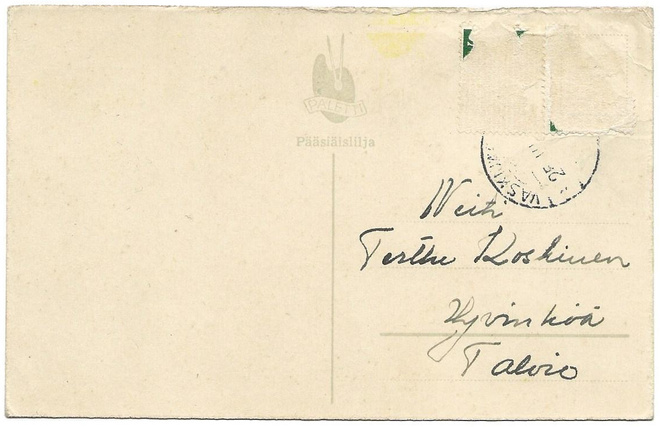 PALETTI
Pääsiäislilja
Neiti
Terttu Koskinen
Hyvinkää
Talvio